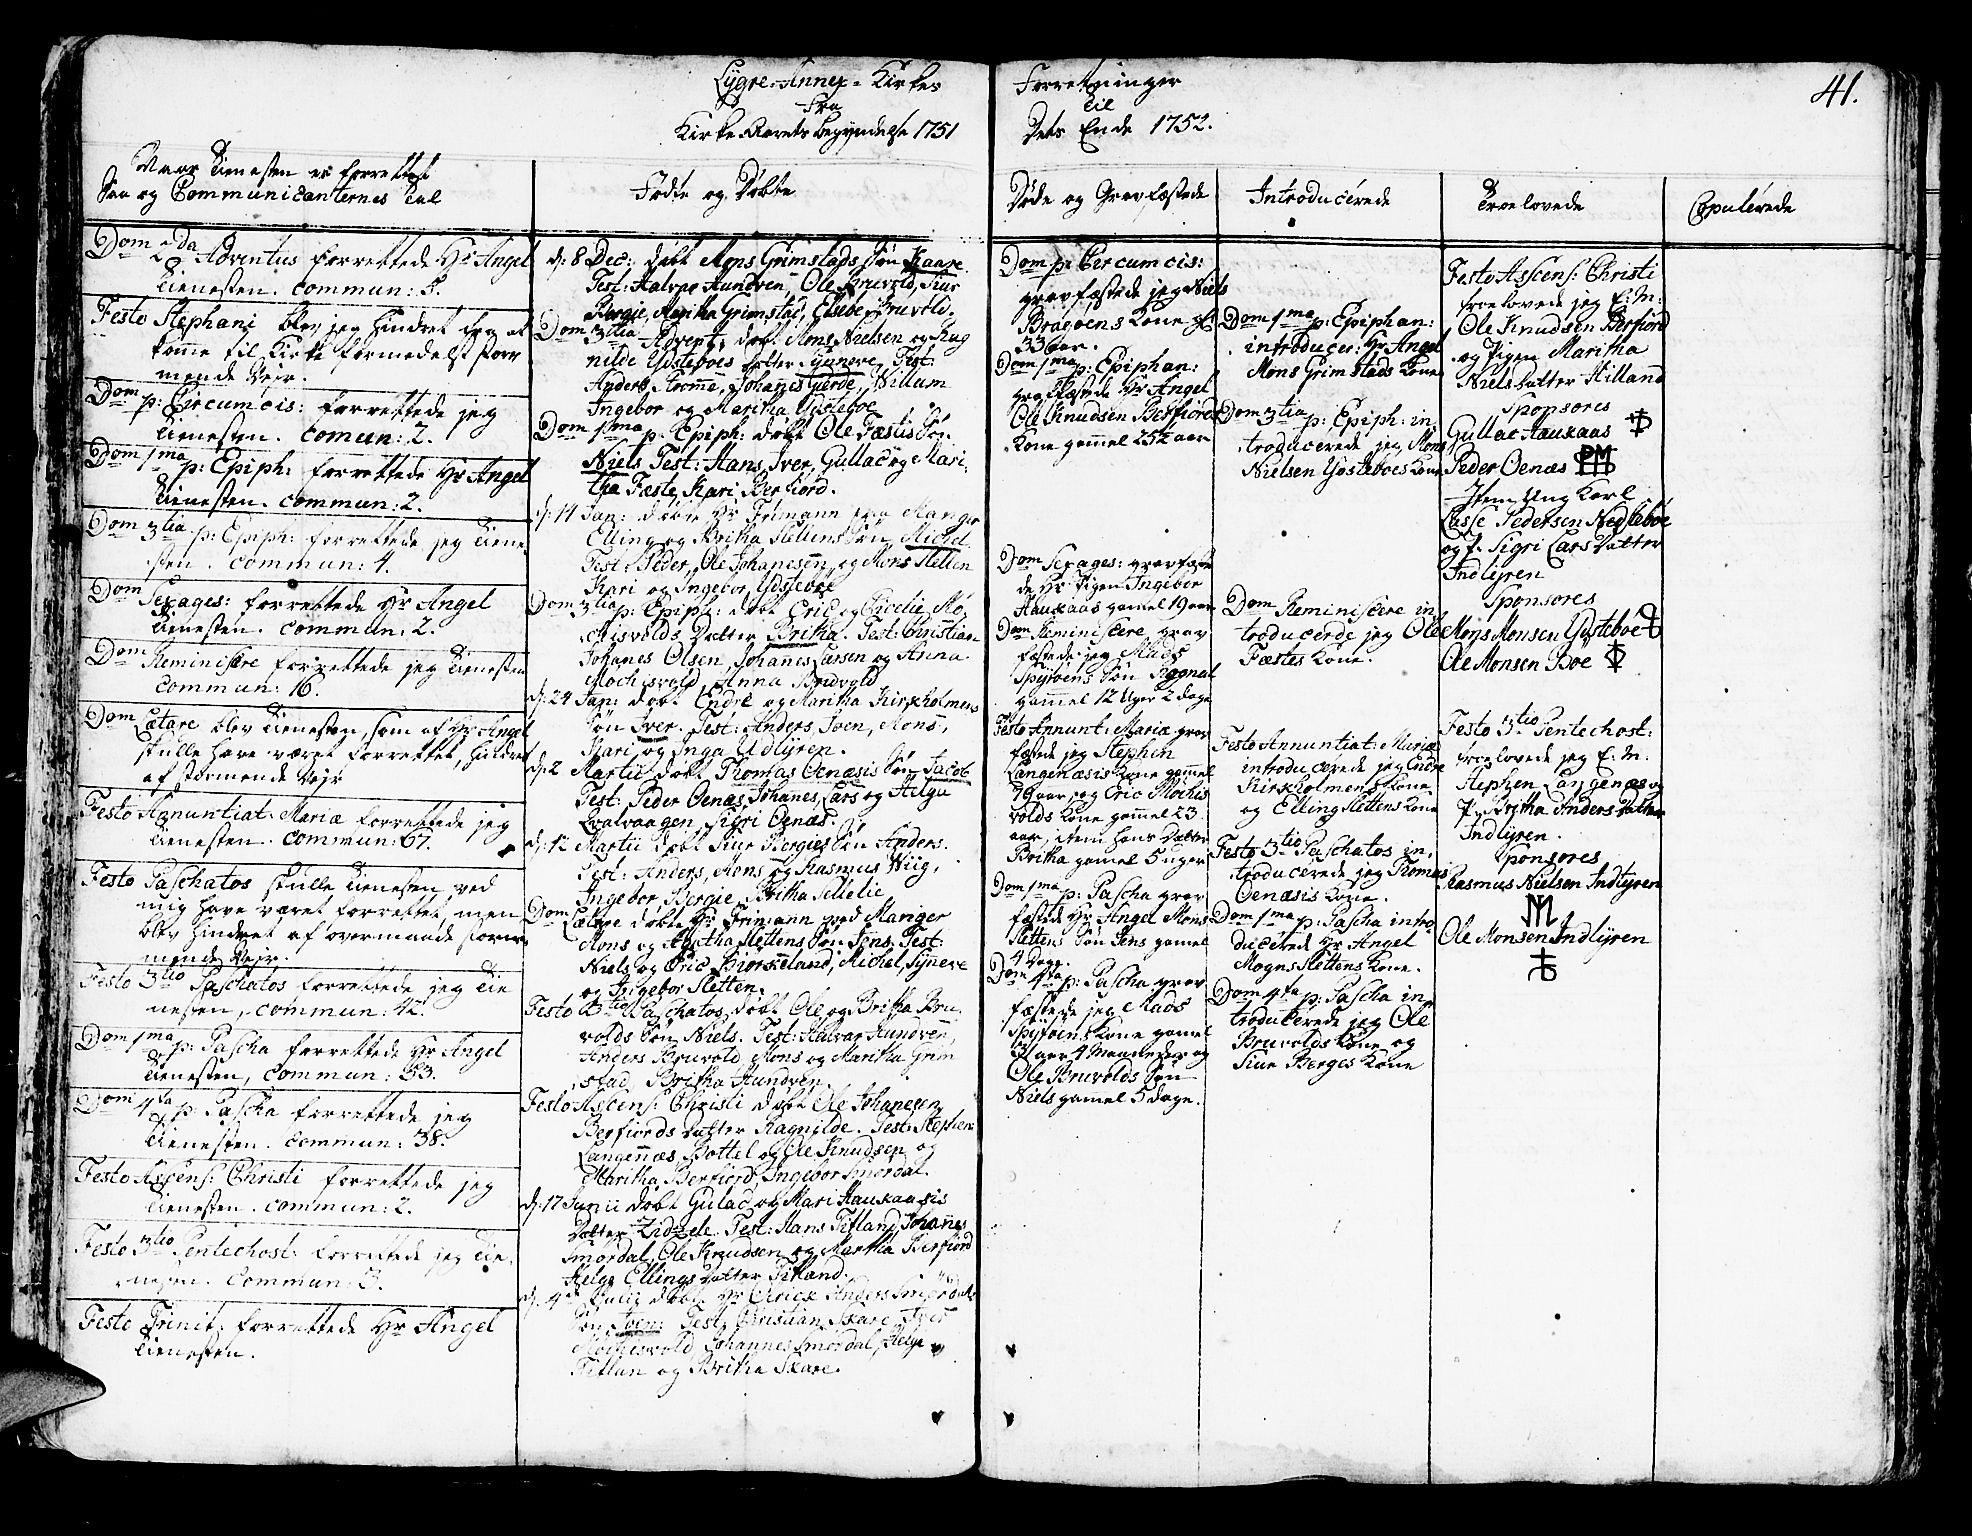 Lygre-Annex-Kirkes
Fra
Kirke Aarets begyndelse 1751
Forretninger
til
Dets Ende 1752.
41.
Naar tienesten er forrettet
Saa og Communicanternes tal
Dom 2da Adventus forrettede Hr Angel
tienesten. commun: 5.
Festo Stephani blev jeg hindret fra at
komme til Kirke formedelst stor
mende Vejr.
Dom p: Circumcis: forrettede jeg
tienesten. comun: 2.
Dom 1ma p: Epiph: forrettede Hr Angel
tienesten. commun: 2.
Dom 3tia p: Epiph: forrettede jeg tiene
sten. commun: 4.
Dom Sexages: forrettede Hr Angel
tienesten. commun: 2.
Dom Reminiscere forrettede jeg tienesten
commun: 16.
Dom Lætare blev tienesten, som af Hr Angel
skulle have været forrettet, hindret
af stormende Vejr
Festo Annuntiat: Mariæ forrettede jeg
tienesten. commun: 67.
Festo Paschatos skulle tienesten ved
mig have været forrettet, men
blev hindret af overmaade stor
mende Vejr.
Festo 3tio Paschatos forrettede jeg tie
nesten, commun: 42.
Dom 1ma p: Pascha forrettede Hr Angel
tienesten, commun: 53.
Dom 4ta p: Pascha forrettede jeg
tienesten. commun: 38.
Festo Ascens: Christi forrettede jeg
tienesten. commun: 2.
Festo 3tio Pentechost: forrettede jeg tie
nesten. commun: 3.
Festo Trinit: forrettede Hr Angel
tienesten.
Fødte og Døbte
d: 8 Dec: døbt Mons Grimstads Søn Kaare.
Test: Halvor Hundven, Ole Bruvold, Siur
Bergie, Maritha Grimstad, Elsebe Bruvold.
Dom 3tia Advent: døbt Mons Nielsen og Rag
nilde Ydsteboes datter Synneve, Test:
Anders Storme, Johanes Gierde, Willum
Ingebor og Maritha Ydsteboe
Dom 1ma p. Epiph: døbt Ole Fæstis Søn
Niels Test: Hans, Iver, Gullac og Mari
tha Fæste, Kari Berfiord.
d: 14 Jan: døbte Hr Frimann fra Manger
Elling og Britha Slettens Søn Michel
Test: Peder, Ole Johanesen, og Mons Sletten
Kari og Ingebor Ydsteboe
Dom 3tia p: Epiph: døbt Eric og Cicelie Mo
chisvolds Datter Britha. Test: Christian
Johanes Olsen, Johanes Larsen og Anna
Mochisvold, Anna Bruvold
d: 24 Jan: døbt Endre og Maritha Kirkholmens
Søn Iver. Test: Anders, Joen, Mons,
Kari og Inga Udlyren.
d: 2 Martii døbt Thomas Oenæsis Søn Jacob
Test: Peder Oenæs, Johanes, Lars og Helga
Qvalvaagen, Sigri Oenæs.
d: 12 Martii døbt Siur Bergies Søn Anders.
Test: Anders, Mons og Rasmus Wiig,
Ingebor Bergie, Britha Mielie
Dom Lætare døbte Hr Frimann ved Manger
Mons og Agatha Slettens Søn Jens. Test:
Niels og Eric Biorskeland, Michel, Synneve
og Ingebor Sletten.
Festo 3tio Paschatos døbt Ole og Britha Bru
volds Søn Niels. Test: Halvar Hundven,
Anders Bruvold, Mons og Maritha Grim
stad, Britha Hundven.
Festo Ascens: Christi døbt Ole Johanesen
Berfiords datter Ragnilde. Test: Stephen
Langenæs, Bottel og Ole Knudsen og
Maritha Berfiord, Ingebor Smørdal.
d: 17 Junii døbt Gulac og Mari Hauxaasis
Datter Zidzele. Test: Hans Titland, Johanes
Smørdal, Ole Knudsen og Martha Berfiord
Helge Ellings Datter Titland.
d: 4de Julii døbt Hr Anders Smørdals
Søn Joen: Test: Christian Skare, Iver
Mochisvold, Johannes Smørdal, Helge
Titlan og Britha Skare.
Døde og Gravfæstede
Dom p: Circumcis:
gravfæstede jeg Niels
Bragoens Kone gl:
33 aar.
Dom 1ma p: Epiphan:
gravfæstede Hr Angel
Ole Knudsen Berfiords
Kone gammel 25½ aar
Dom Sexages: gravfæste
de Hr Pigen Ingebor
Hauxaas gamel 19 aar
Dom Reminiscere grav
fæstede jeg Mads
Spyføens Søn Rognal
gammel 12 Uger 2 dage
Festo Annunt: Mariæ grav
fæstede jeg Stephen
Langenæsis Kone gammel
79 aar, og Eric Mochis
volds Kone gammel 23
aar, item hans Datter
Britha gamel 5 uger
Dom 1ma p: Pascha grav
fæstede Hr Angel Mons
Slettens Søn Jens gamel
4 Dage.
Dom 4ta p: Pascha grav
fæstede jeg Mads
Spyføens Kone gamel
31 aar 4 Maaneder og
Ole Bruvolds Søn
Niels gamel 5 dage.
Introducerede
Dom 1ma p: Epiphan:
introducer: Hr Angel
Mons Grimstads Kone
Dom 3tia p: Epiph: in
troducerede jeg Mons
Nielsen Ydsteboes Kone
Dom Reminiscere in
troducerde jeg Ole
Fæstes Kone.
Festo Annuntiat: Mariæ
introducerede jeg Endre
Kirkholmens Kone
og Elling Slettens Kone
Festo 3tio Paschatos in,
troducerede jeg Thomas
Oenæsis Kone.
Dom 1ma p: Pascha intro
ducerede Hr Angel
Mogns Slettens Kone.
Dom 4ta p: Pascha in
troducerede jeg Ole
Bruvolds Kone og
Siur Berges Kone
Troelovede
Festo Asscens: Christi
troelovede jeg E: M:
Ole Knudsen Berfiord
og Pigen Maritha
Niels datter Hilland
Sponsores
Gullac Hauxaas
Peder Oenæs PM
Item Ung Karl
Lasse Pedersen Nedreboe
og P. Sigri Lars Datter
Indlyren
Sponsores
Mons Monsen Ydsteboe
Ole Monsen Bøe
Festo 3tio Pentechost:
troelovede jeg E: M:
Stephen Langenæs og
P: Britha Anders Datter
Indlyren.
Sponsores
Rasmus Nielsen Indlyren
Ole Monsen Indlyren
Copulerede